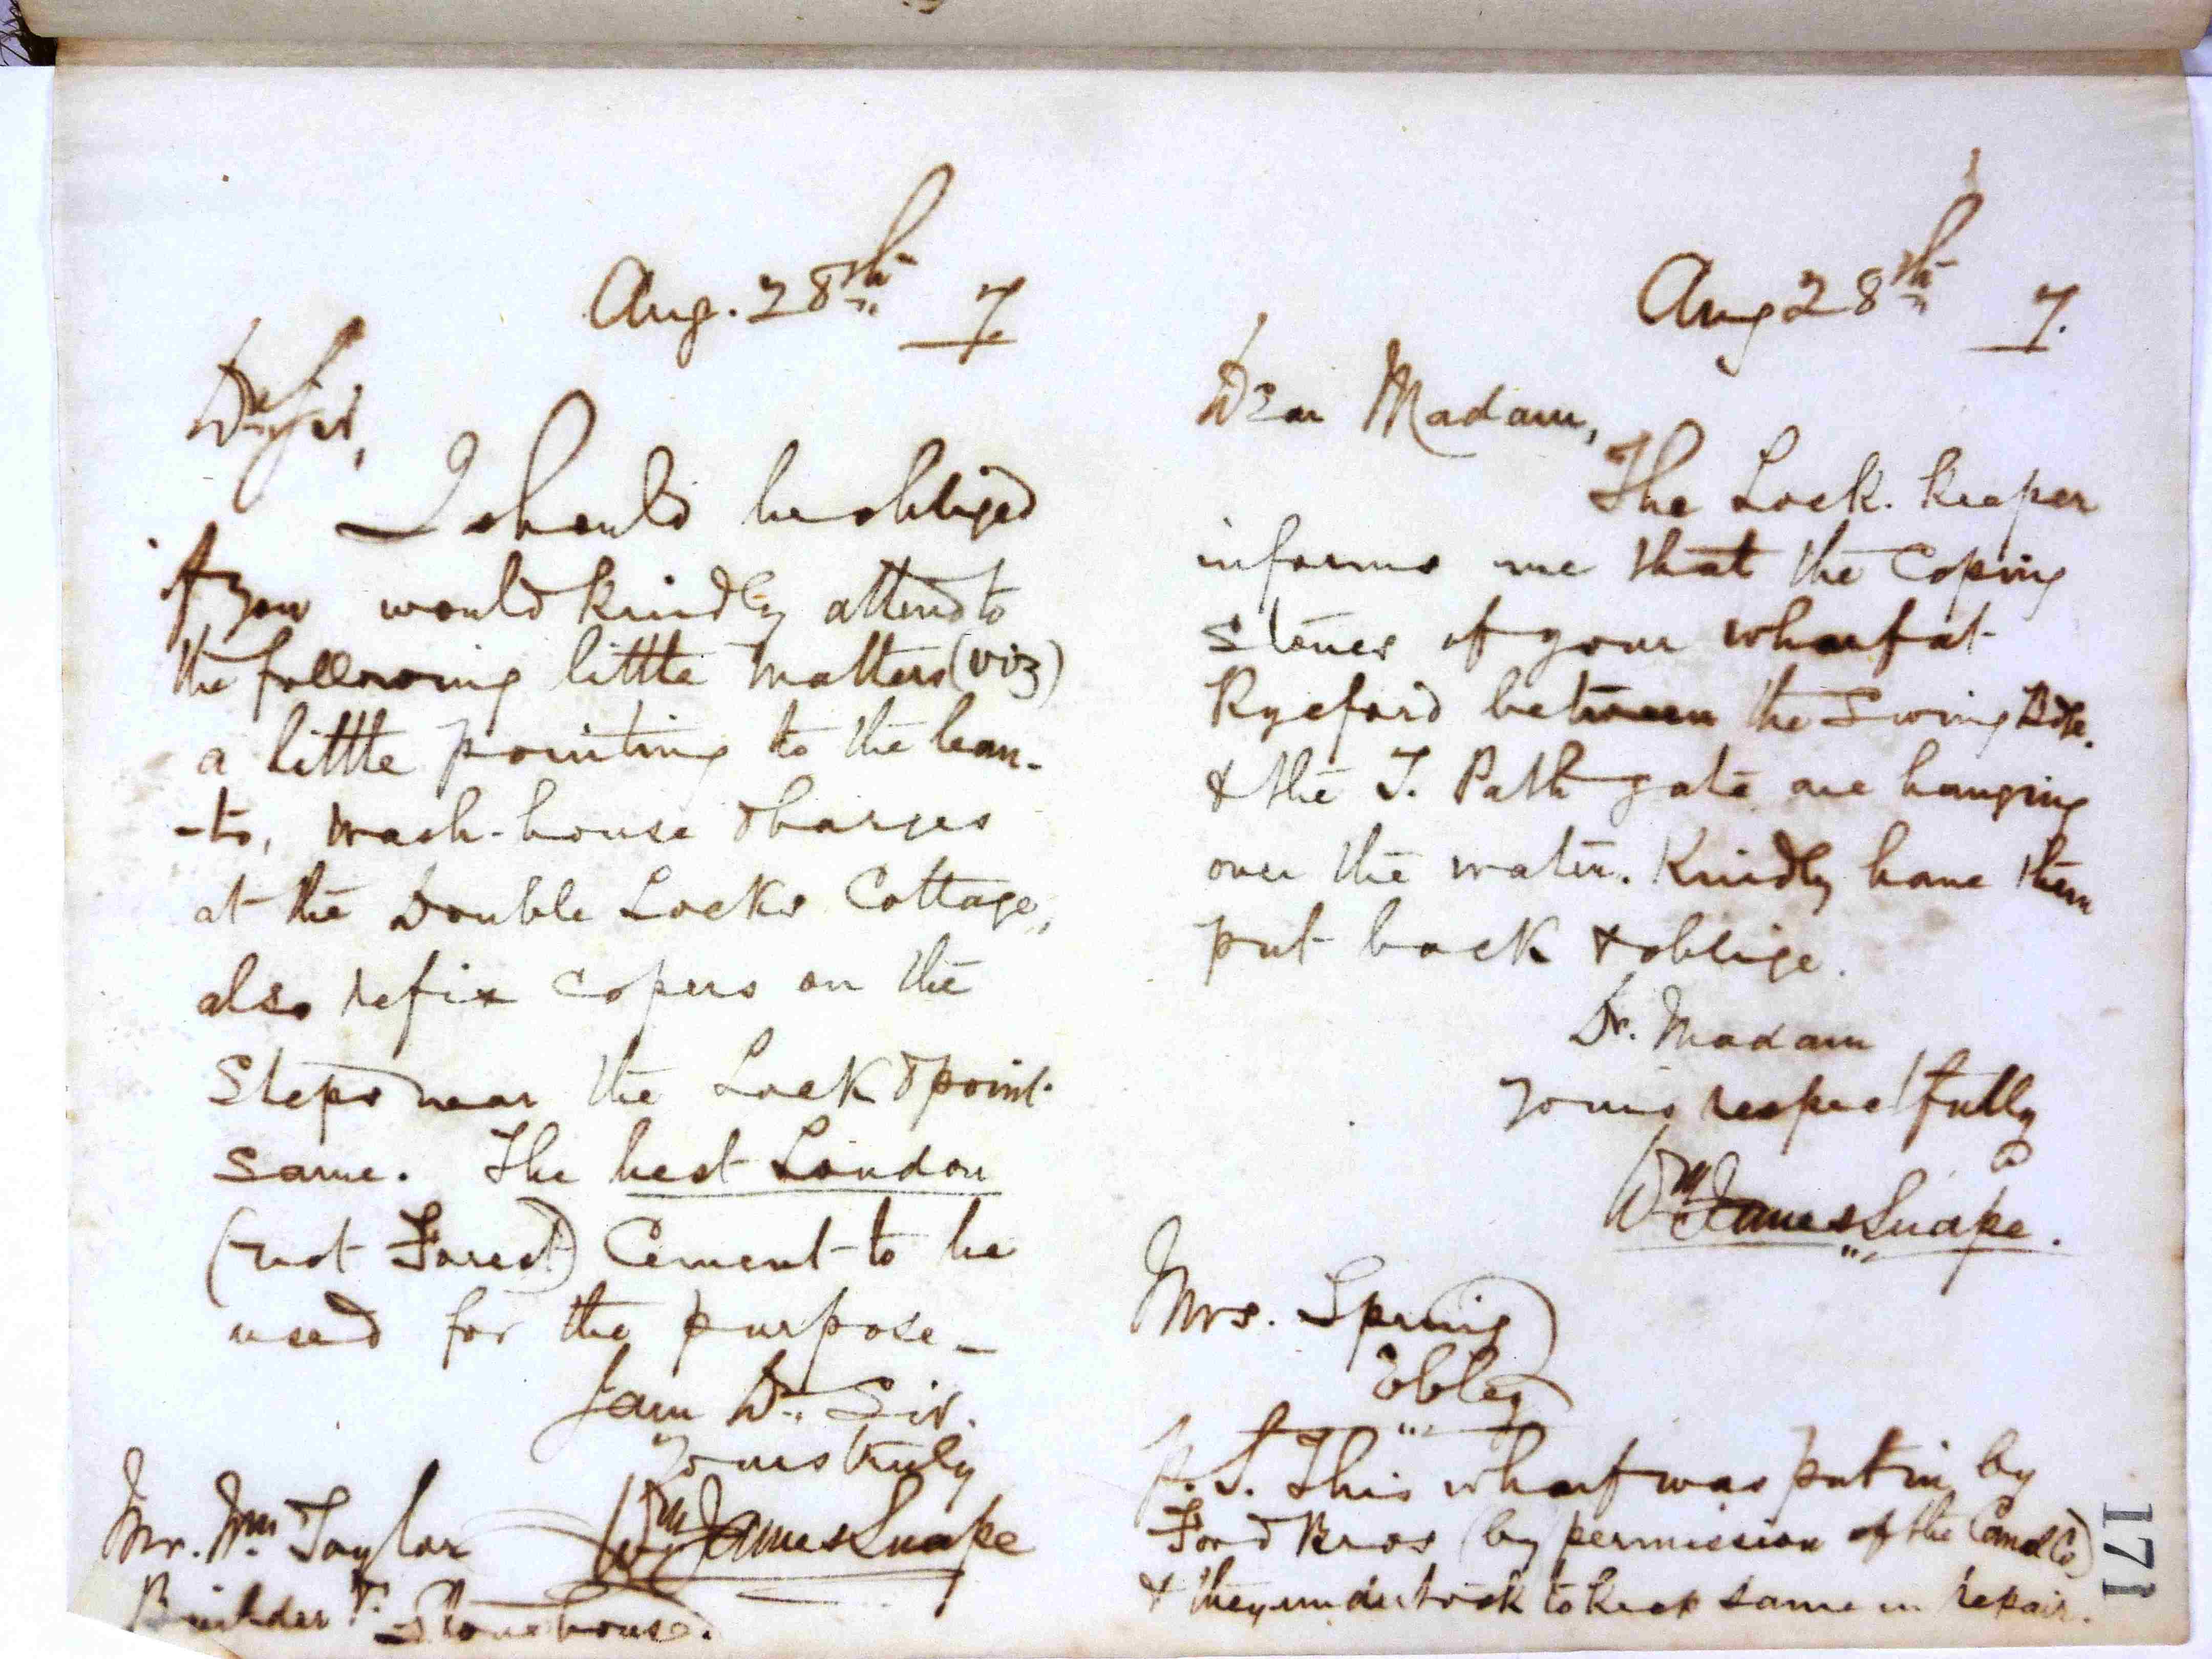 Aug. 28th 7
Dr Sir,
I should be obliged
if you would kindly attend to
the following little matters (viz)
a little pointing to the lean-
-to, wash-house & barges
at the Double Locks Cottage,
also refix copers on the
Steps near the Lock & point
same. The best London
(not Forest) Cement to be
used for the purpose -
I am Dr Sir.
Yours truly
Wm James Snape
Mr. Wm Taylor
Builder &c. Stonehouse.
Aug 28th 7.
Dear Madam,
The Lock. keeper
informs me that the Coping
Stones of your wharf at
Ryeford between the Swing Bdge.
& the T. Path gate are hanging
over the water. Kindly have them
put back & oblige.
Dr. Madam
Yours respectfully
Wm James Snape.
Mrs. Spring
Ebley
P.S. This wharf was put in by
Ford Bros (by permission of the Canal Co)
& they undertook to keep same in repair.
171